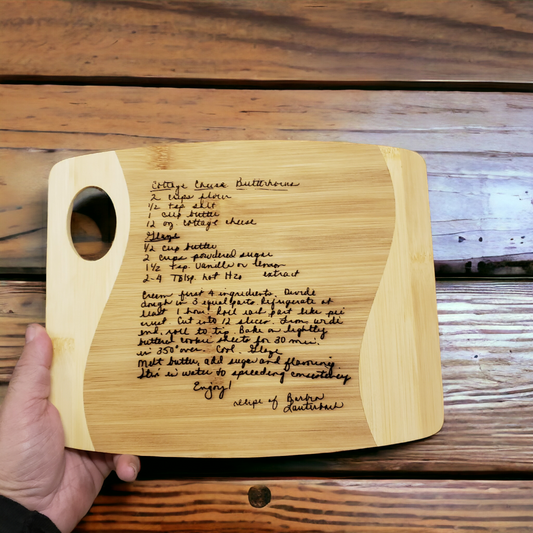 Cottage Cheese Butterhorns
2 cups flour
1/2 tsp salt
1 cup butter
12 oz. cottage cheese
Glaze
1/2 cup butter
2 cups powdered sugar
1 1/2 tsp. vanilla or lemon
2-4 Tblsp hot H2o extract
Cream first 4 ingredients. Divide
dough in 3 equal parts Refrigerate at
least 1 hour! Roll each part like pie
crust Cut into 12 slices. From wide
end roll to tip. Bake on lightly
buttered cookie sheets for 30 min.
in 350° oven. Cool. Glaze
Melt butter, add sugar and flavoring
Stir in water to spreading consistency
Enjoy!
recipe of Barbra
Lauterbach